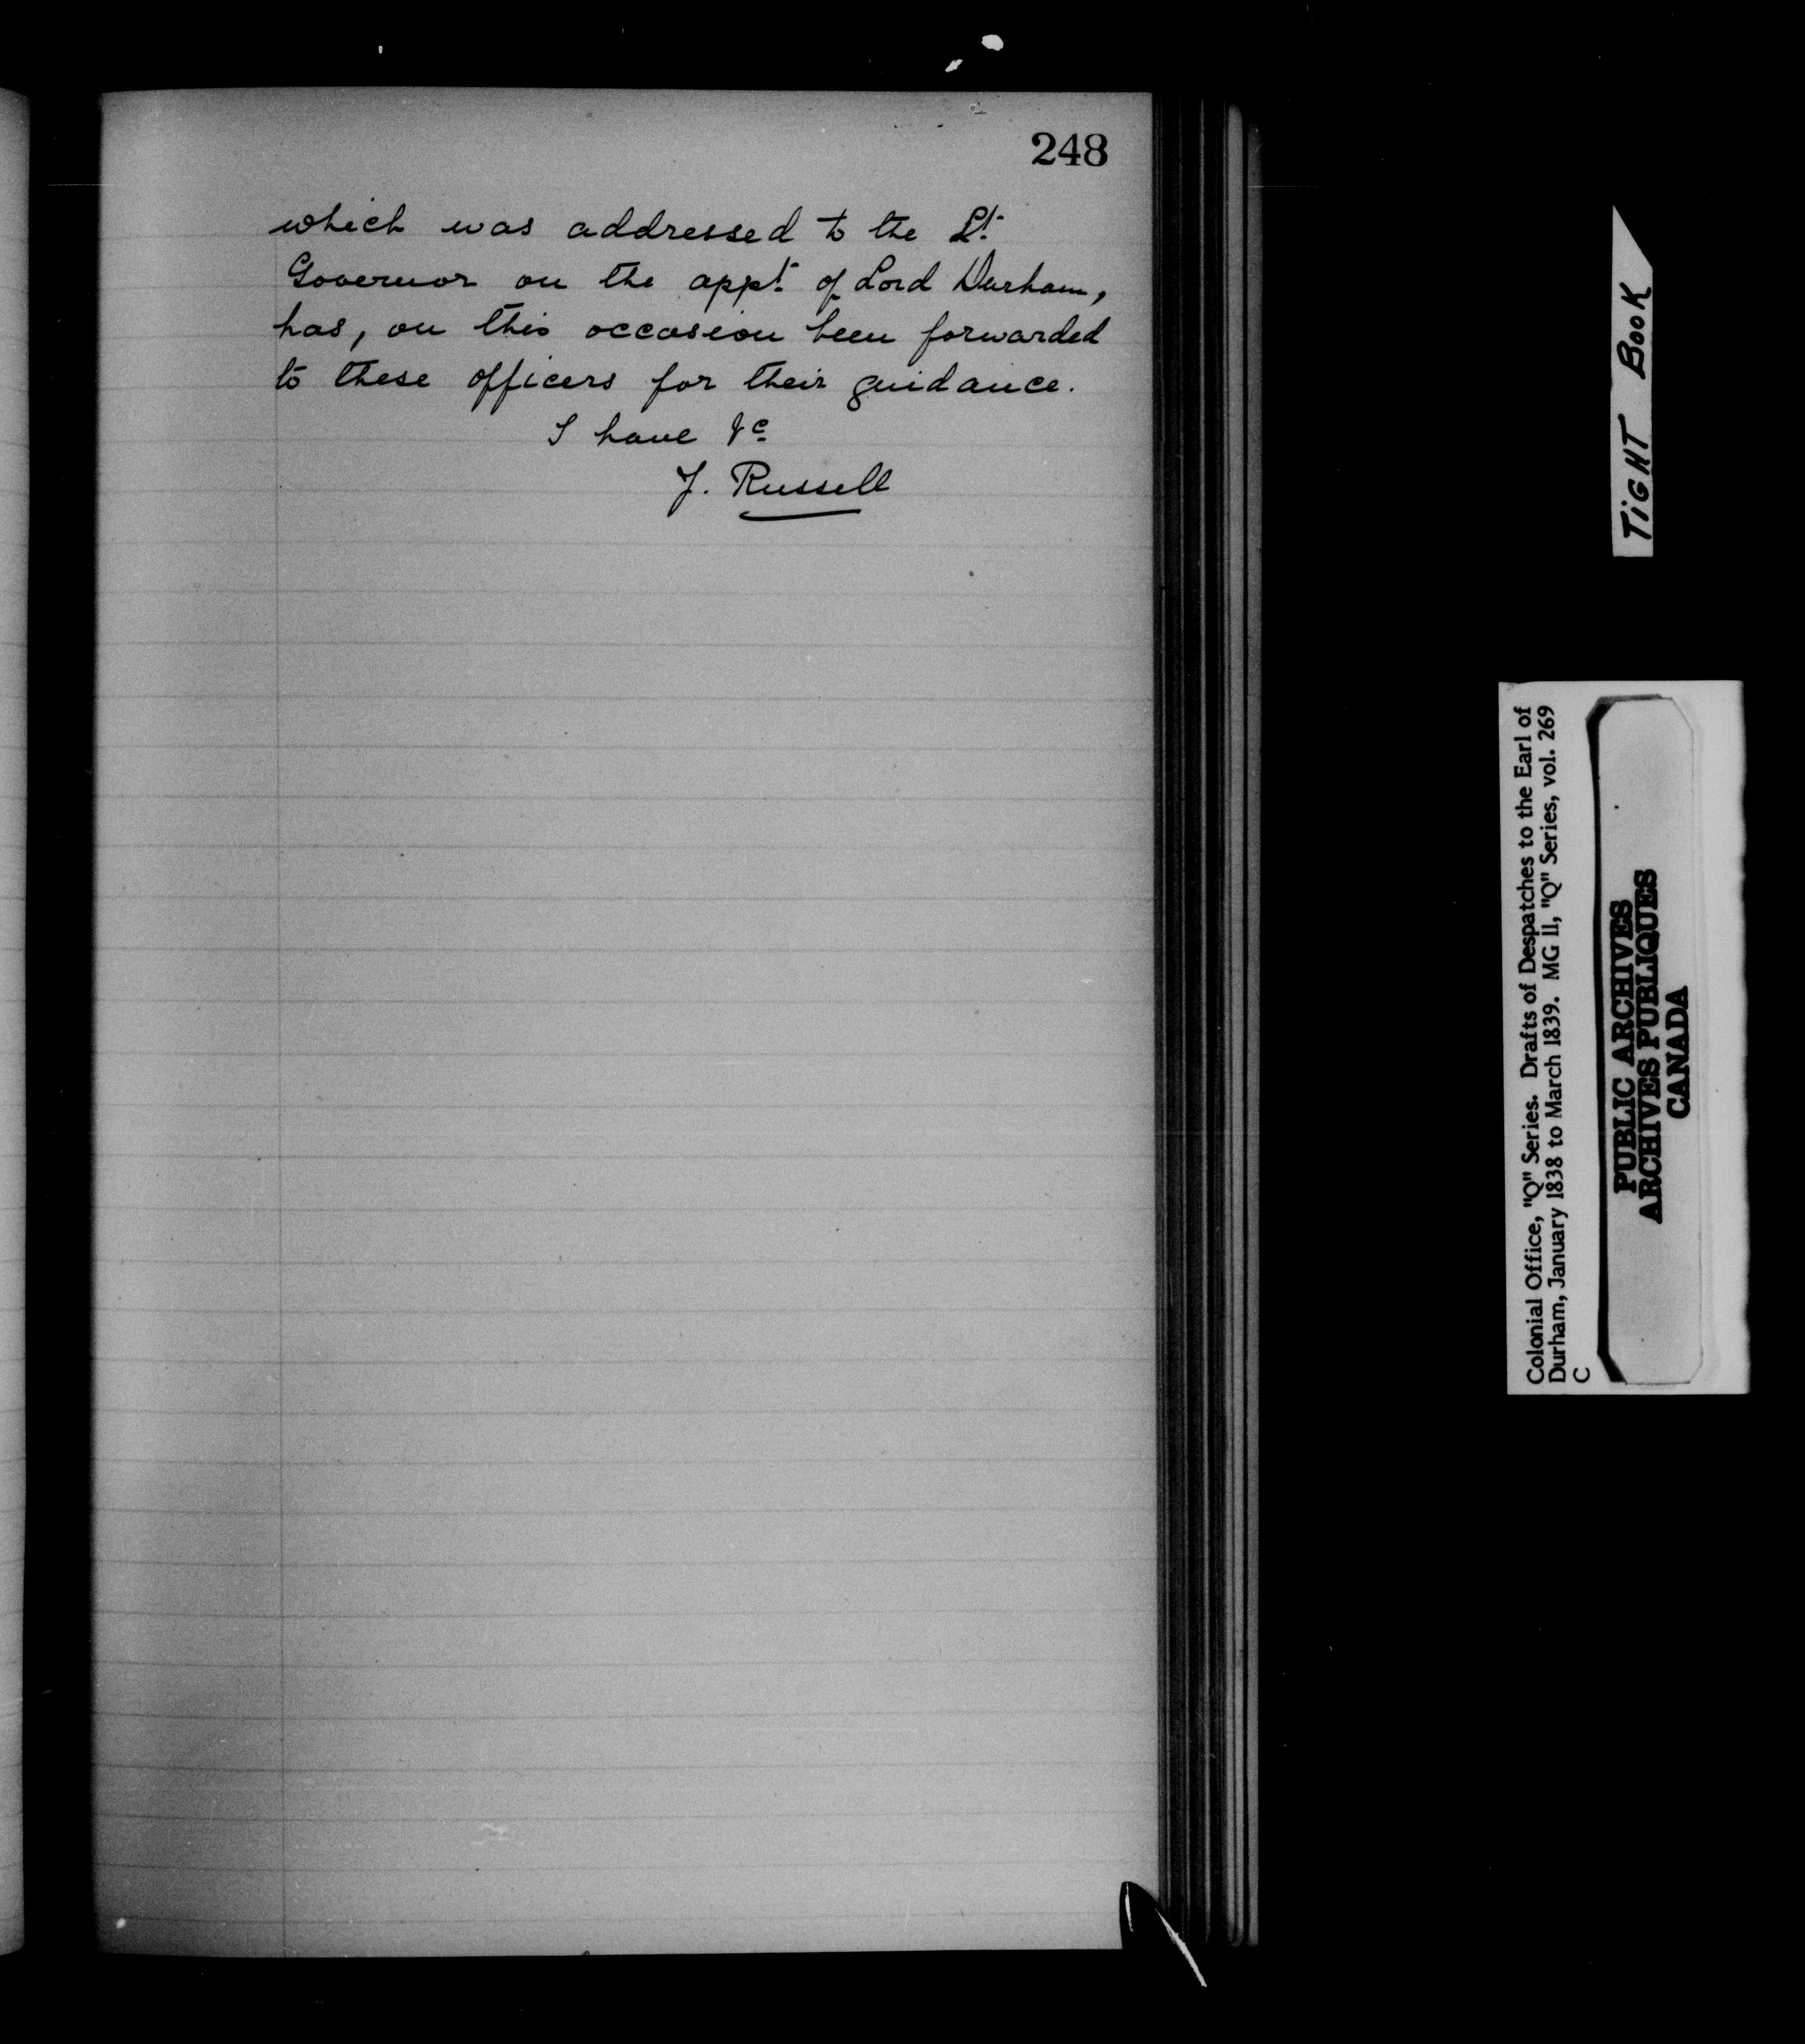 248
which was addressed to the Lt.
Governor on the appt. of Lord Durham,
has, on this occasion been forwarded
to these officers for their guidance.
I have &c
J. Russell
TiGHT BooK
Colonial Office, "Q" Series. Drafts of Despatches to the Earl of
Durham, January 1838 to March 1839. MG 11, "Q" Series, vol. 269
C
PUBLIC ARCHIVES
ARCHIVES PUBLIQUES
CANADA